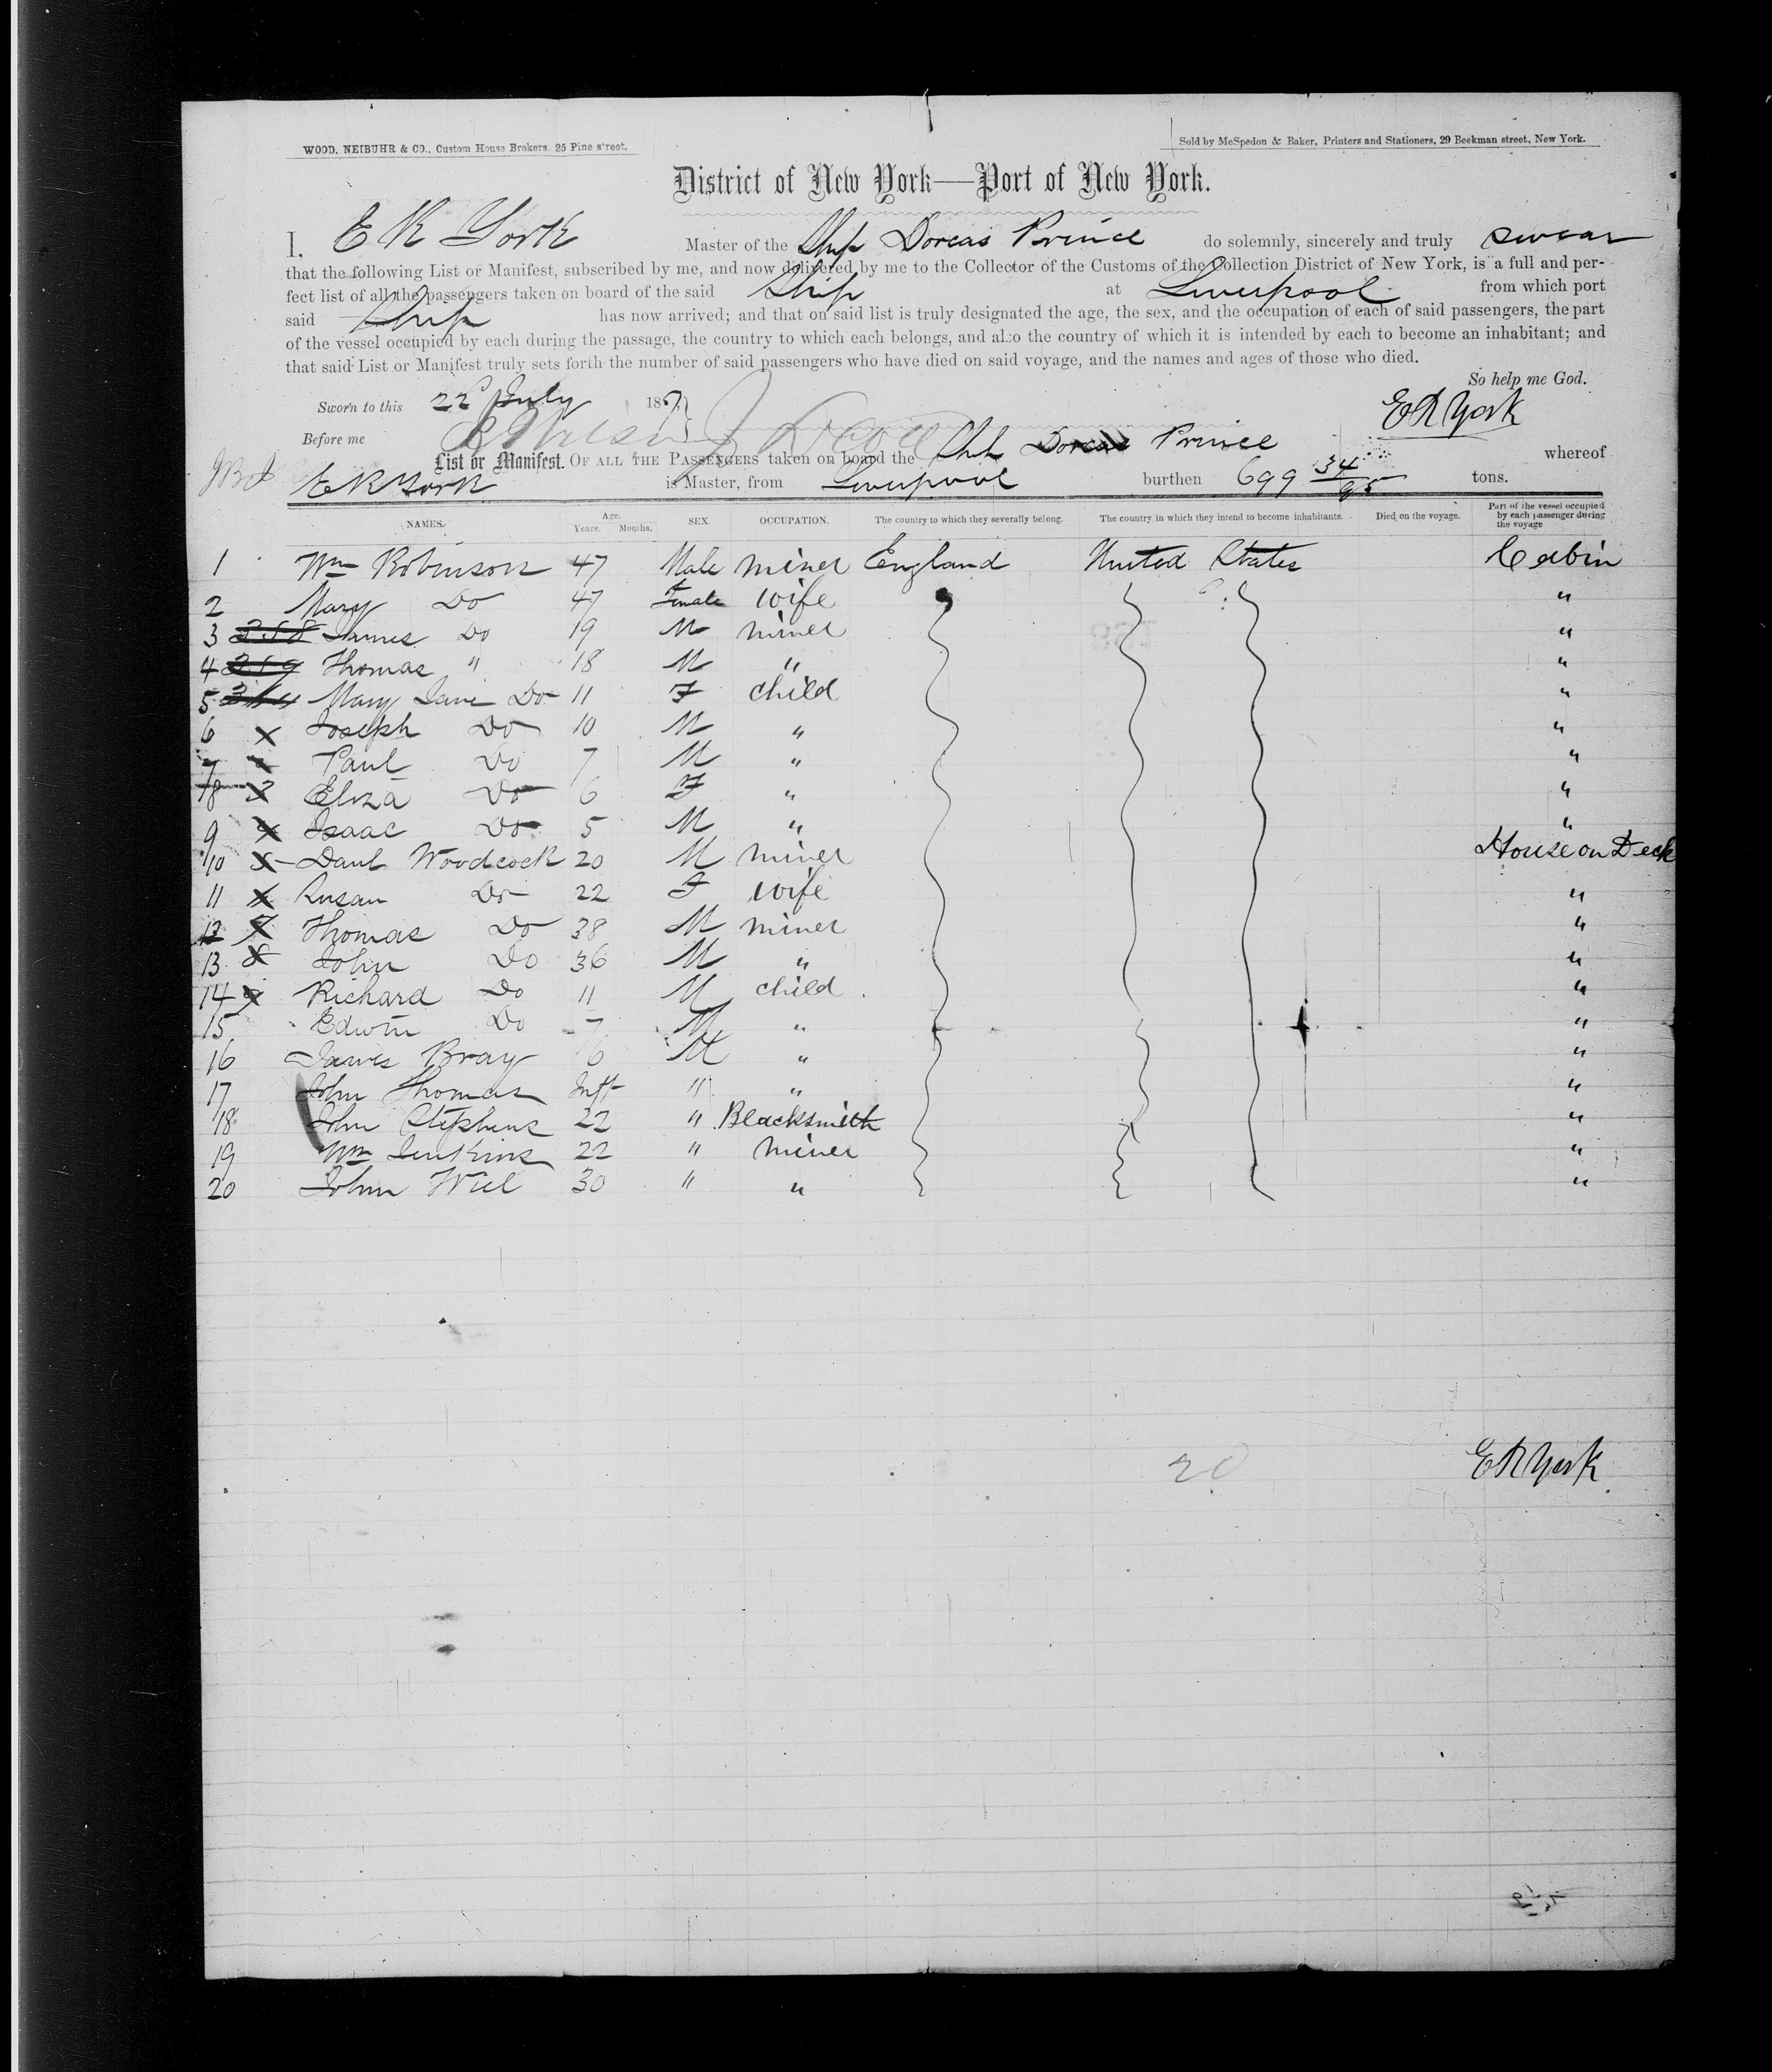 WOOD, NEIBUHR & CO., Custom House Brokers, 25 Pine street.
Sold by McSpedon & Baker, Printers and Stationers, 29 Beekman street, New York.
District of New York—Port of New York.
I, E R York Master of the Ship Dorcas Prince do solemnly, sincerely and truly swear
that the following List or Manifest, subscribed by me, and now delivered by me to the Collector of the Customs of the Collection District of New York, is a full and per-
fect list of all the passengers taken on board of the said Ship at Liverpool from which port
said Ship has now arrived; and that on said list is truly designated the age, the sex, and the occupation of each of said passengers, the part
of the vessel occupied by each during the passage, the country to which each belongs, and also the country of which it is intended by each to become an inhabitant; and
that said List or Manifest truly sets forth the number of said passengers who have died on said voyage, and the names and ages of those who died.
So help me God.
Sworn to this 22 July 18
E R York
Before me
List or Manifest. OF ALL THE PASSENGERS taken on board the Ship Dorcas Prince whereof
E R York is Master, from Liverpool burthen 699 34/95 tons.
NAMES. Age. Years. Months. SEX. OCCUPATION. The country to which they severally belong. The country in which they intend to become inhabitants. Died on the voyage. Part of the vessel occupied by each passenger during the voyage
1 Wm Robinson 47 Male miner England United States Cabin
2 Mary Do 47 Female wife "
3 358 James Do 19 M miner "
4 359 Thomas " 18 M " "
5 Mary Jane Do 11 F child "
6 x Joseph Do 10 M " "
7 Paul Do 7 M " "
8 x Eliza Do 6 F " "
9 x Isaac Do 5 M " "
10 x Danl Woodcock 20 M miner House on Deck
11 x Susan Do 22 F wife "
12 x Thomas Do 38 M miner "
13 x John Do 36 M " "
14 x Richard Do 11 M child "
15 Edwin Do 7 M " "
16 James Bray 6 M " "
17 John Thomas Inft " " "
18 John Stephens 22 " Blacksmith "
19 Wm Jenkins 22 " miner "
20 John Wiel 30 " " "
20
E R York